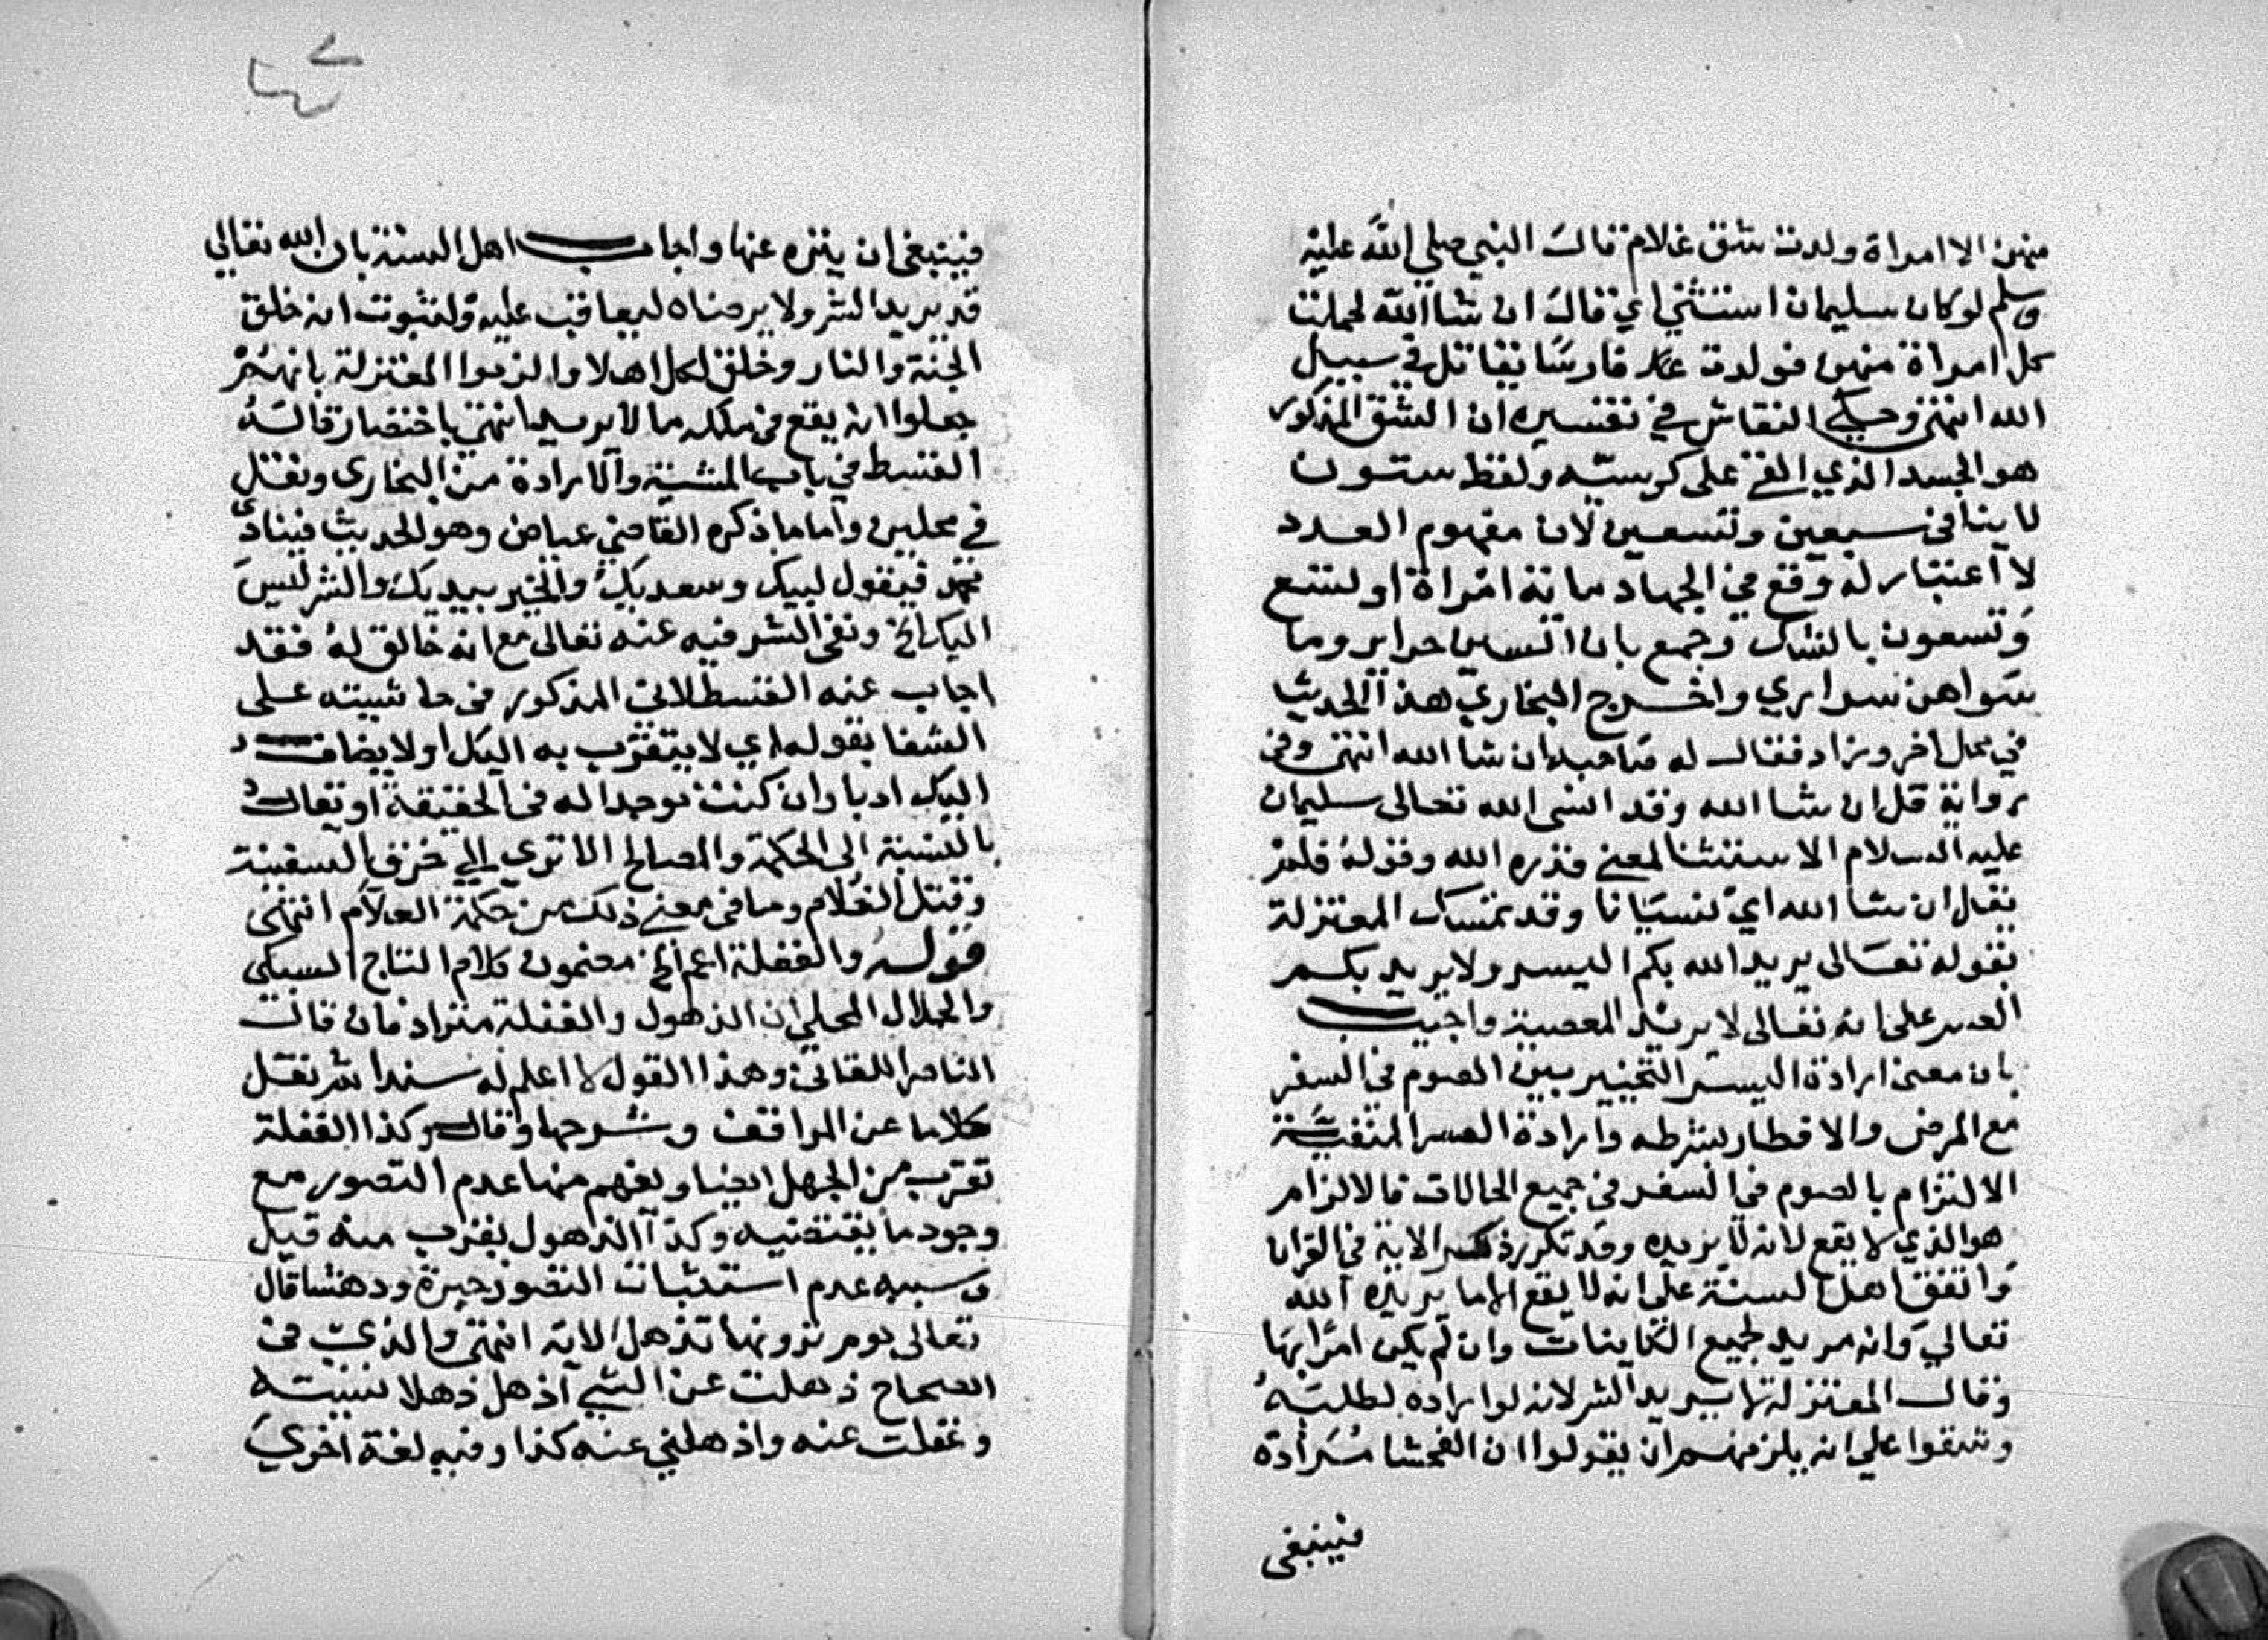 منهن الا امراة ولدت شق غلام قال النبي صلى الله عليه
وسلم لو كان سليمان استثنى اي قال ان شا الله لحملت
كل امراة منهن فولدت فارسا يقاتل في سبيل
الله انتهى وحكى النقاش في تفسيره ان الشق المذكور
هو الجسد الذي القى على كرسيه ولفظ ستون
لا ينافى سبعين وتسعين لان مفهوم العدد
لا اعتبار له وقع في الجهاد مائة امراة او تسع
وتسعون بالشك وجمع بان الستين حراير وما
سواهن سراري واخرج البخاري هذا الحديث
في محل اخر وزاد فقال له صاحبه ان شا الله انتهى وفى
رواية قل ان شا الله وقد انسى الله تعالى سليمان
عليه السلام الاستثنا لمعنى قدره الله وقوله فلم
يقل ان شا الله اي نسيانا وقد تمسك المعتزلة
بقوله تعالى يريد الله بكم اليسر ولا يريد بكم
العسر على انه تعالى لا يريد المعصية واجيب
بان معنى ارادة اليسر التخيير بين الصوم في السفر
مع المرض والافطار بشرطه وارادة العسر المنفية
الالتزام بالصوم في السفر في جميع الحالات فالالزام
هو الذي لا يقع لانه لا يريده وقد تكرر ذكر الاية في القران
واتفق اهل السنة على انه لا يقع الا ما يريده الله
تعالى وانه مريد لجميع الكاينات وان لم يكن امرا بها
وقالت المعتزلة لا يريد الشر لانه لو اراده لطلبه
وشنعوا على انه يلزمهم ان يقولوا ان الفحشا مرادة
فينبغى
فينبغى ان ينزه عنها واجاب اهل السنة بان الله تعالى
قد يريد الشر ولا يرضاه ليعاقب عليه ولثبوت انه خلق
الجنة والنار وخلق لكل اهلا والزموا المعتزلة بانهم
جعلوا انه يقع في ملكه ما لا يريد انتهى باختصار قاله
القسط في باب المشية والارادة من البخارى ونقل
في محلين واما ما ذكره القاضي عياض وهو الحديث فينادى
محمد فيقول لبيك وسعديك والخير بيديك والشر ليس
اليك الخ ونفى الشر فيه عنه تعالى مع انه خالق له فقد
اجاب عنه القسطلانى المذكور في حاشيته على
الشفا بقوله اي لا يتقرب به اليك او لا يضاف
اليك ادبا وان كنت موجدا له في الحقيقة او تعاك
بالنسبة الى الحكمة والمصالح الا ترى الى خرق السفينة
وقتل الغلام وما في معنى ذلك من حكمة العلام انتهى
قوله والغفلة اعم الخ مضمون كلام التاج السبكى
والجلال المحلى ان الذهول والغفلة مترادفان قال
الناصر اللقانى وهذا القول لا اعلم له سندا ثم نقل
كلاما عن المواقف وشرحها وقال وكذا الغفلة
تقرب من الجهل ايضا ويفهم منها عدم التصور مع
وجود ما يقتضيه وكذا الذهول يقرب منه قيل
وسببه عدم استثبات التصور حيرة ودهشا قال
تعالى يوم ترونها تذهل الاية انتهى والذي في
الصحاح ذهلت عن الشي اذهل ذهلا نسيته
وغفلت عنه واذهلني عنه كذا وفيه لغة اخرى